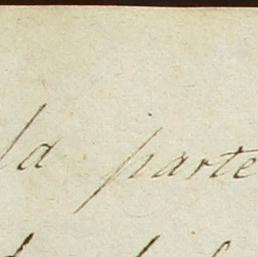 la parte